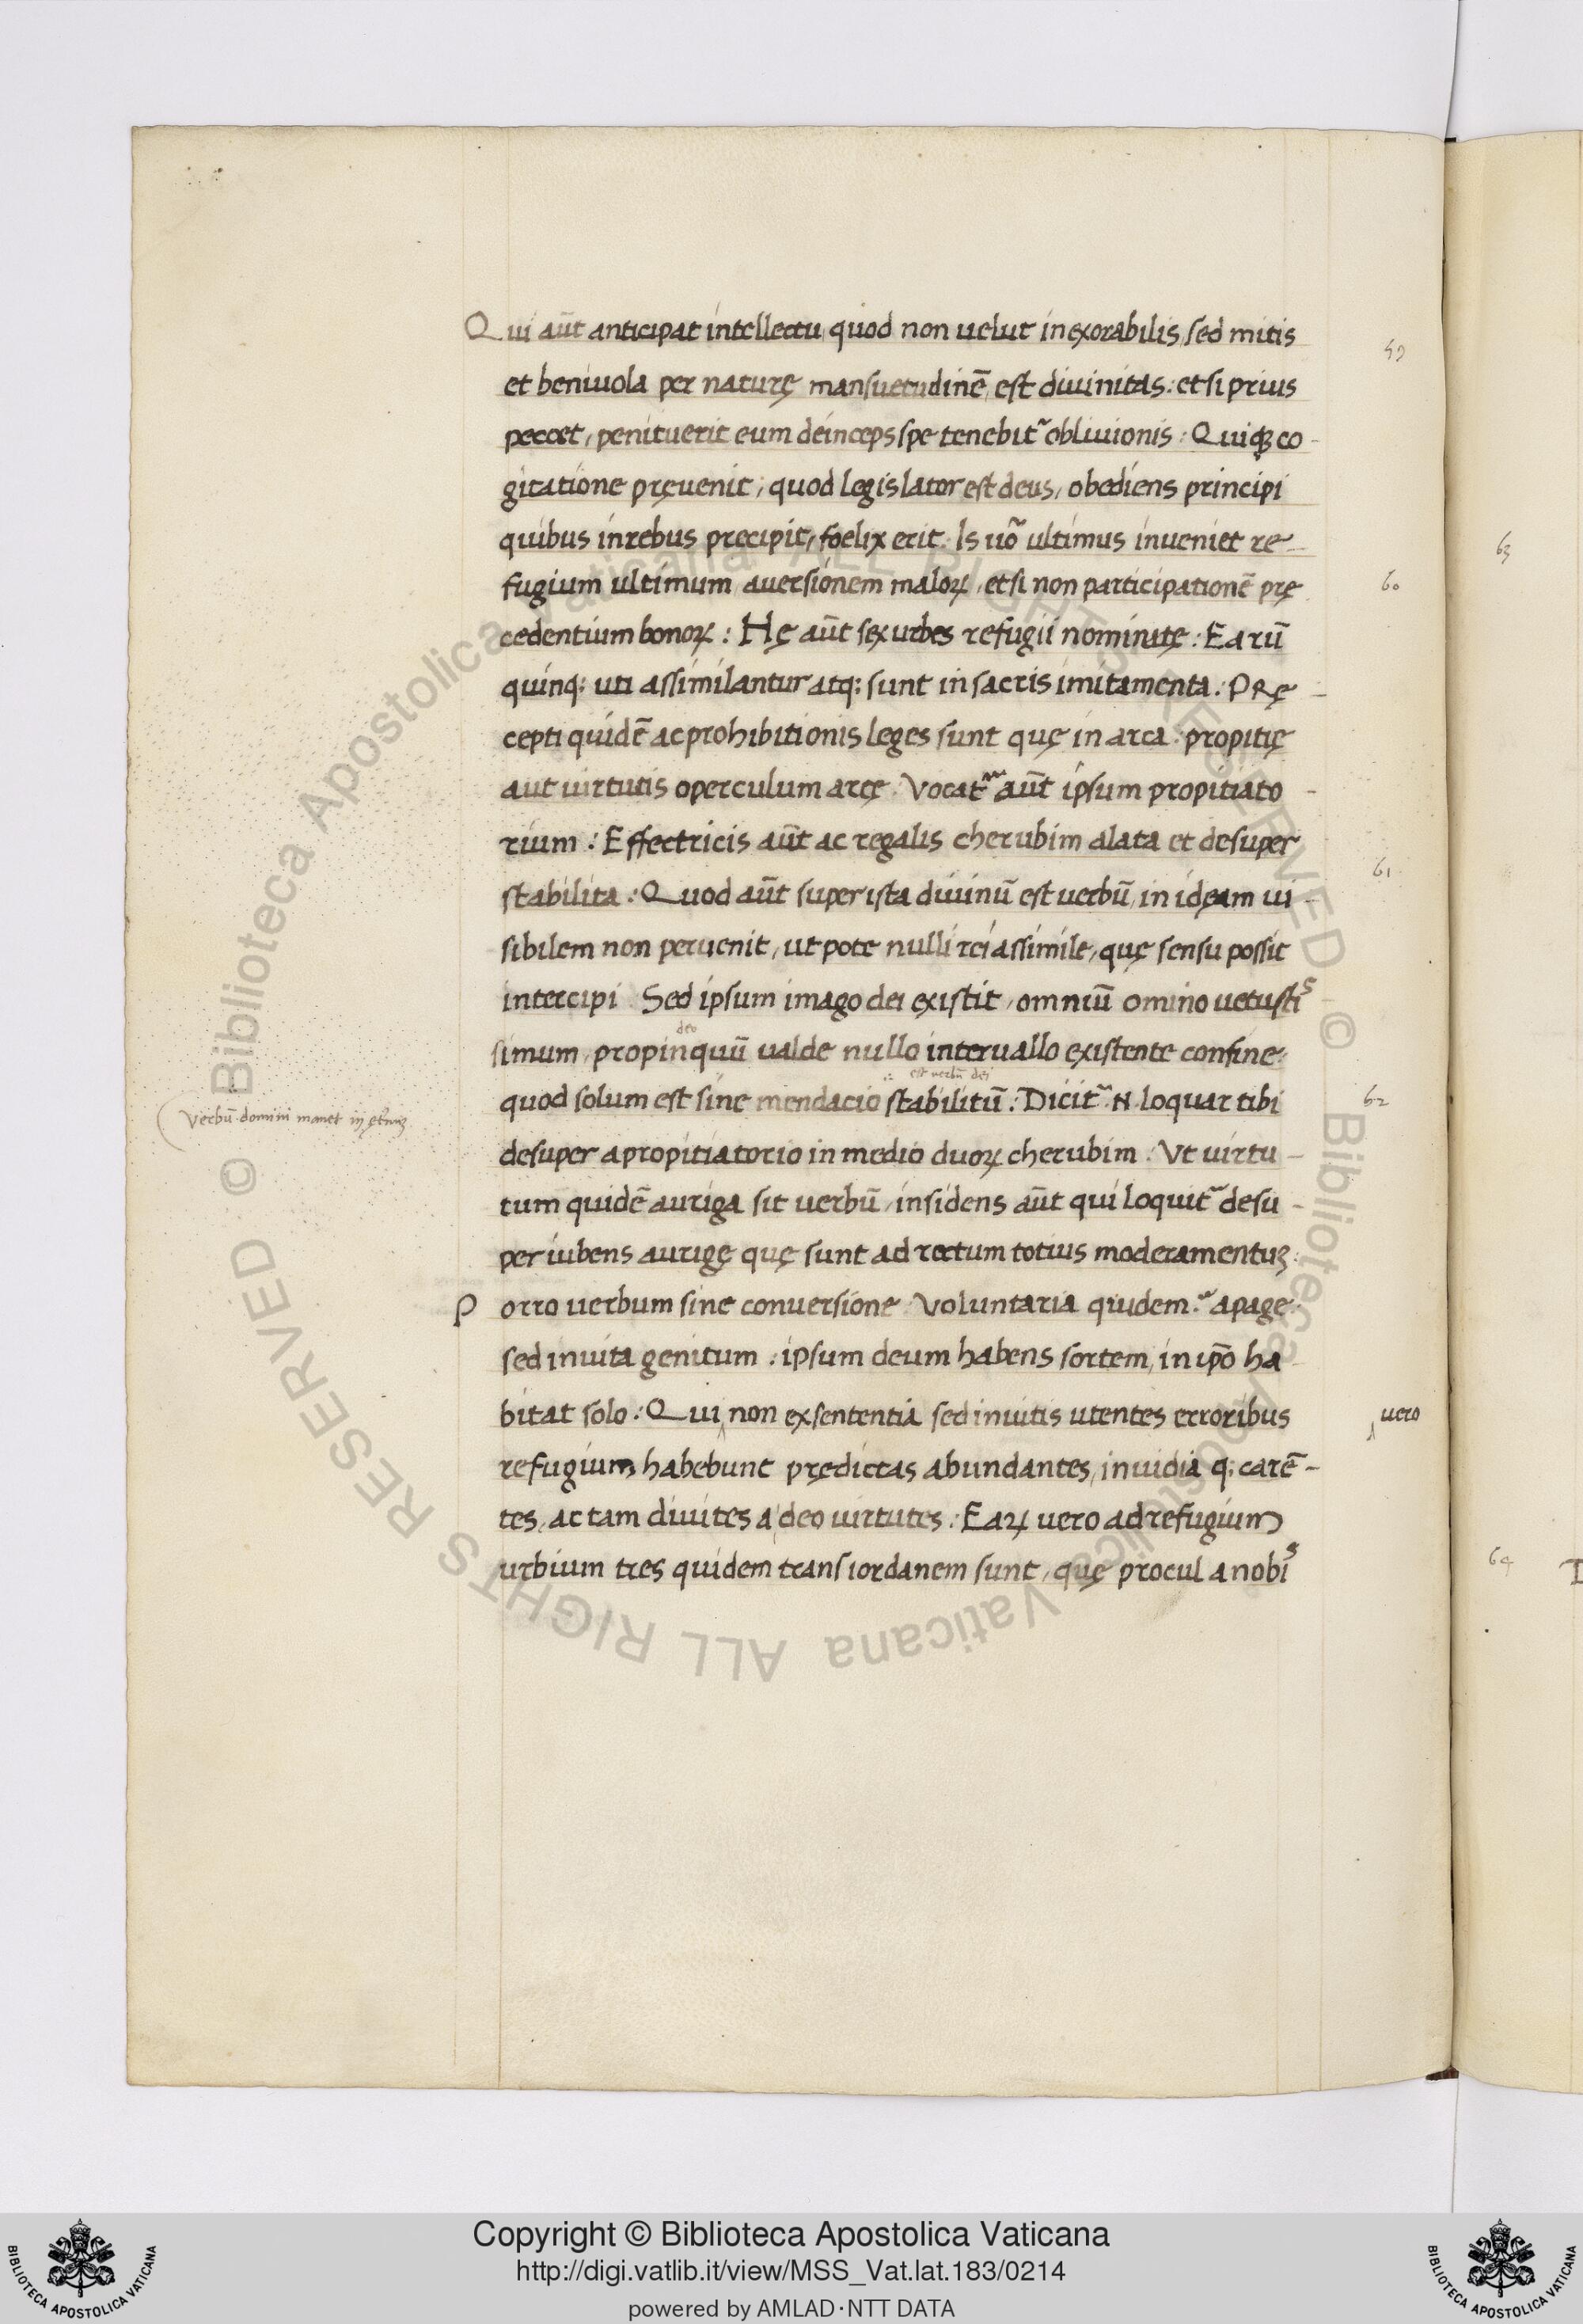 Qui aūt anticipat intellectu, quod non uelut inexorabilis, sed mitis
et beniuola per naturę mansuetudinē, est diuinitas: et si prius
peccet, penituerit eum deinceps spe tenebit᷑ obliuionis: Quiqꝫ co-
gitatione pręuenit, quod legislator est deus, obediens principi
quibus in rebus precipit, foelix erit. Is uō ultimus inueniet re-
fugium ultimum auersionem maloꝝ, et si non participationē prę
cedentium bonoꝝ: Hę aūt sex urbes refugii nominatę: Earū
quinq: uti assimilantur atq: sunt in sacris imitamenta. PRę-
cepti quidē ac prohibitionis leges sunt quę in arca. propitię
aut uirtutis operculum arcę. Vocat᷑ aūt ipsum propitiato-
rium: Effectricis aūt ac regalis cherubim alata et desuper
stabilita: Quod aūt super ista diuinū est uerbū, in idęam ui-
sibilem non peruenit, ut pote nulli rei assimile, quę sensu possit
intercipi. Sed ipsum imago dei existit, omniū omino uetustis
simum, propinquū ualde nullo interuallo existente confine:
deo
quod solum est sine mendacio stabilitū: Dicit᷑ .N. loquar tibi
est uerbū dei
desuper a propitiatorio in medio duoꝝ cherubim. Vt uirtu-
tum quidē auriga sit uerbū, insidens aūt qui loquit᷑ desu-
per iubens aurigę quę sunt ad rectum totius moderamentuꝫ.
Porro uerbum sine conuersione. Voluntaria quidem. apage.
sed inuita genitum: ipsum deum habens sortem, in ip̄o ha
bitat solo: Qui non ex sententia sed inuitis utentes erroribus
refugium habebunt prędictas abundantes, inuidia q: carē-
tes, ac tam diuites a deo uirtutes: Eaꝝ uero ad refugium
urbium tres quidem trans iordanem sunt, quę procul a nobis
Verbū domini manet in ęternuꝫ
59
60
61
62
uero
63
64
© Biblioteca Apostolica Vaticana ALL RIGHTS RESERVED © Biblioteca Apostolica Vaticana ALL RIGHTS RESERVED
Copyright © Biblioteca Apostolica Vaticana
http://digi.vatlib.it/view/MSS_Vat.lat.183/0214
powered by AMLAD·NTT DATA
BIBLIOTECA APOSTOLICA VATICANA
BIBLIOTECA APOSTOLICA VATICANA